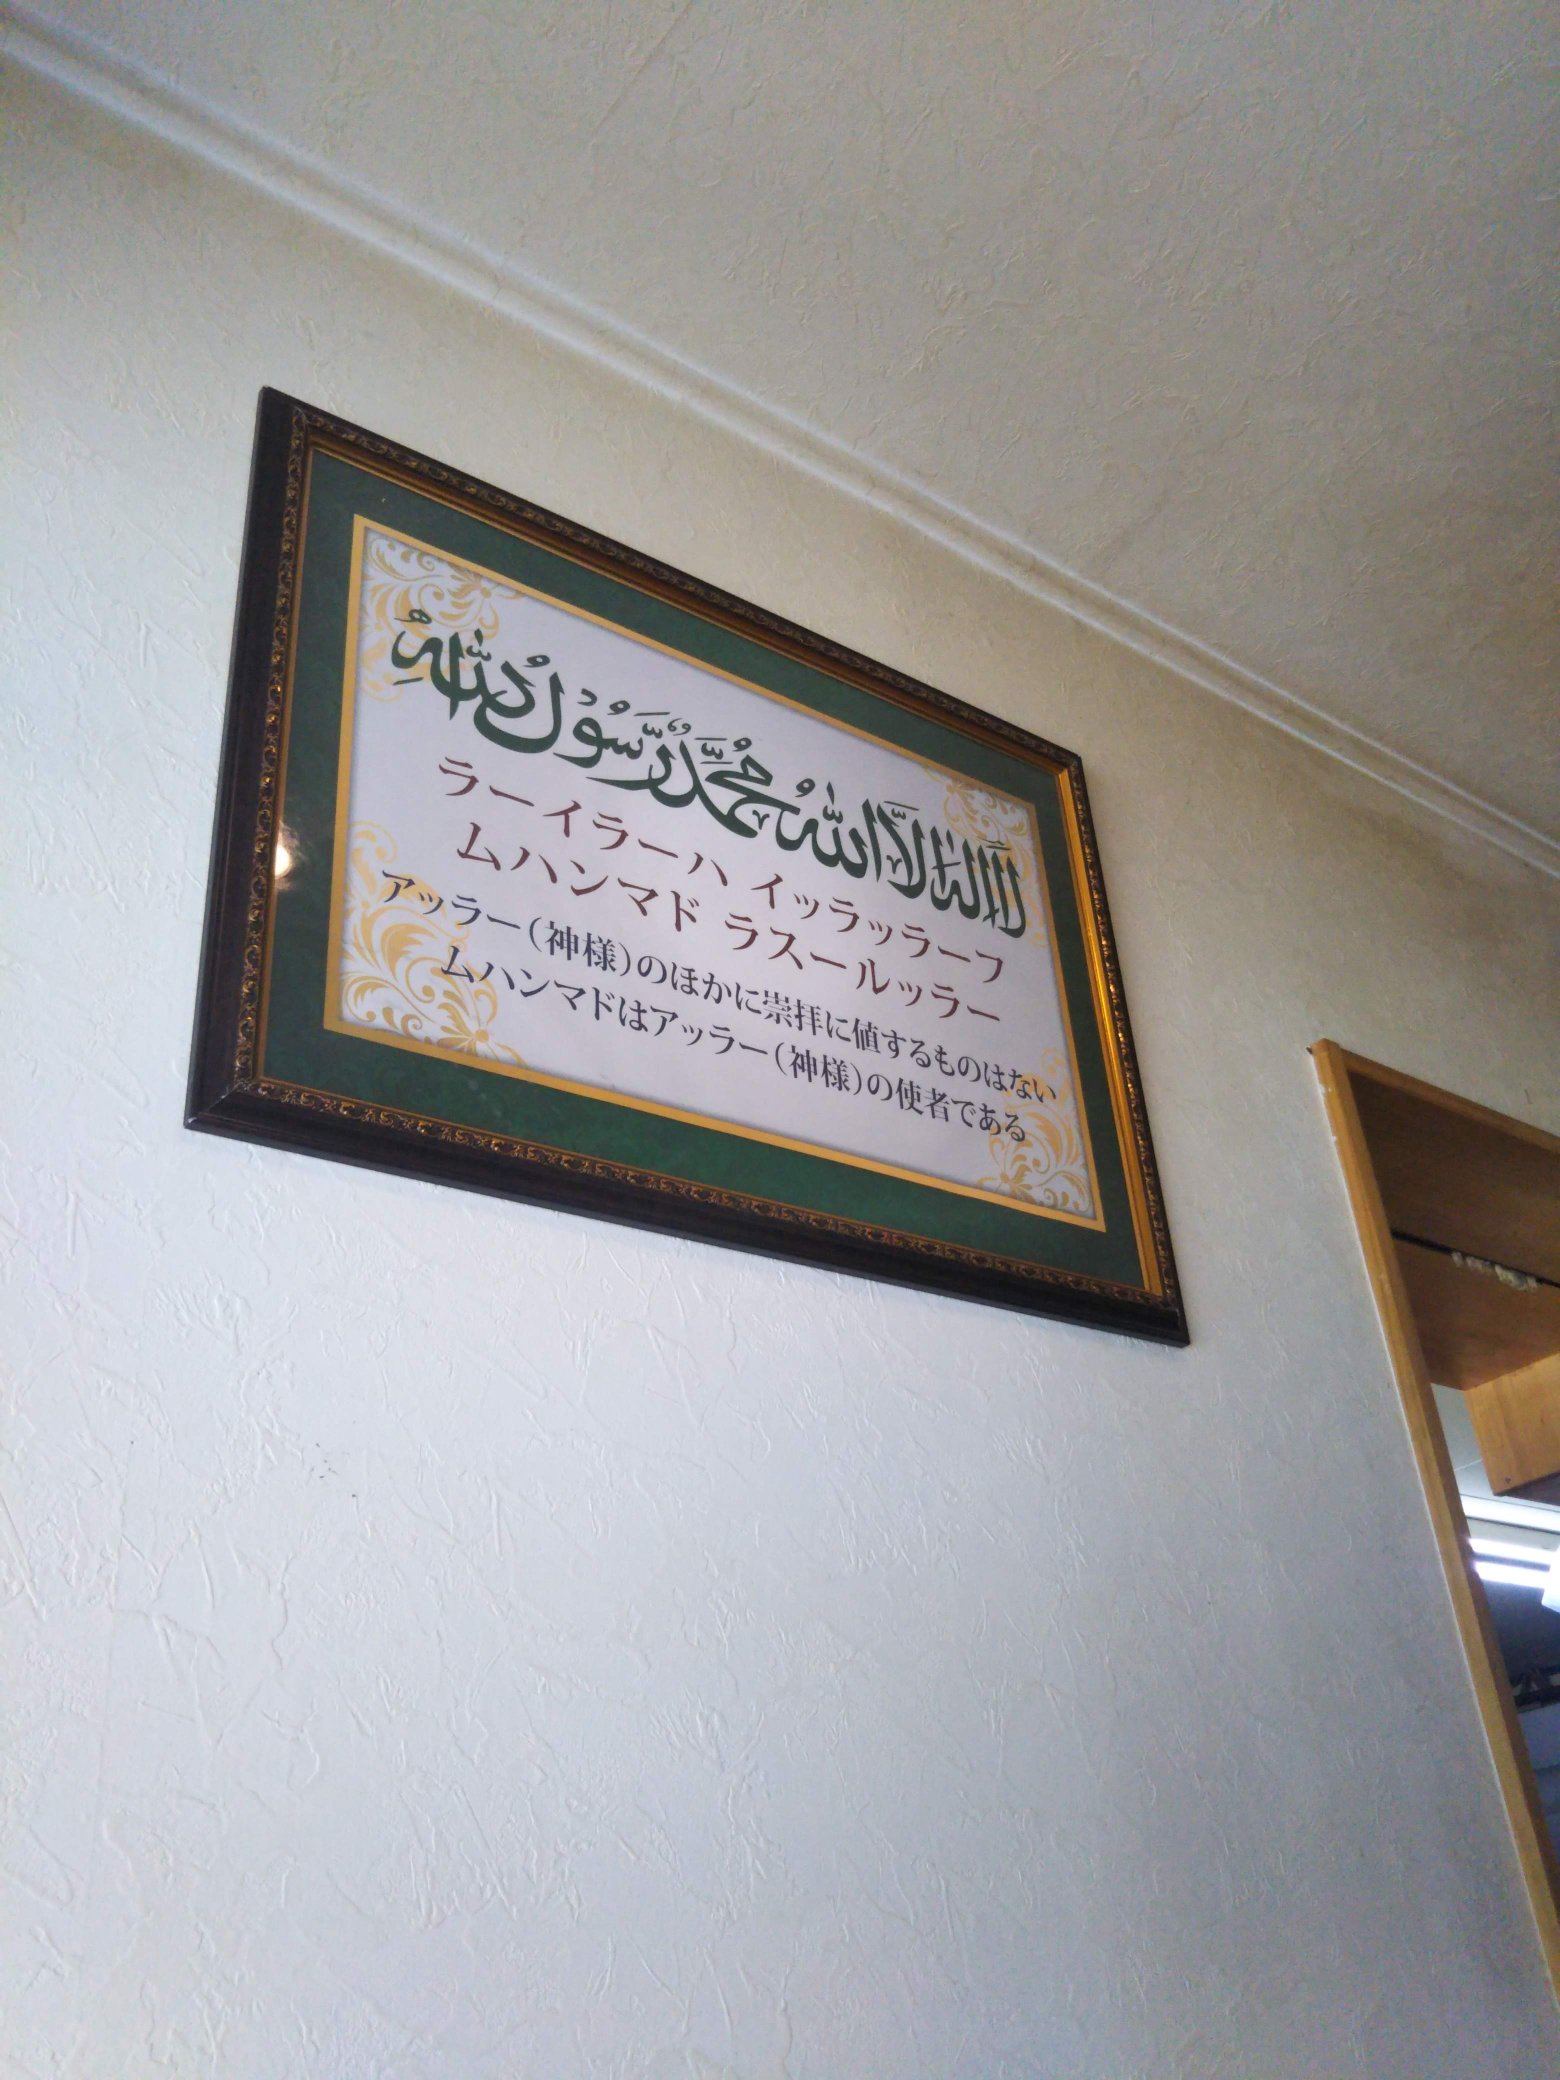 لَا إِلٰهَ إِلَّا اللهُ مُحَمَّدٌ رَّسُوْلُ اللهِ
ラーイラーハ イッラッラーフ
ムハンマド ラスールッラー
アッラー（神様）のほかに崇拝に値するものはない
ムハンマドはアッラー（神様）の使者である